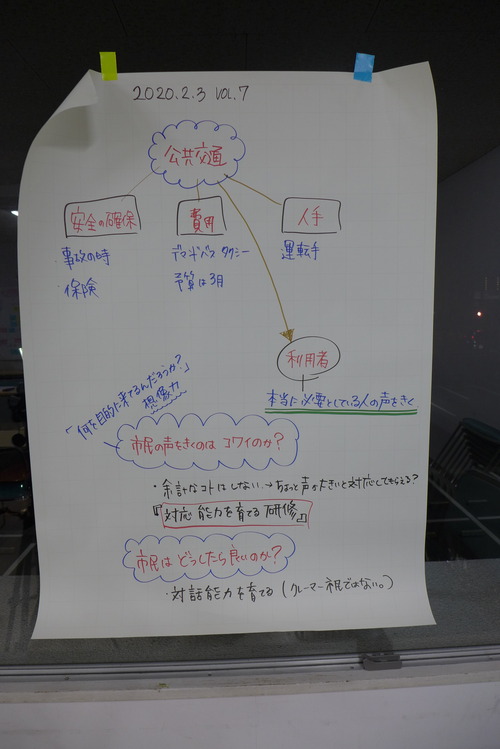 2020.2.3 VOL.7
公共交通
安全の確保
費用
人手
事故の時
デマンドバス タクシー
運転手
保険
予算は3月
利用者
本当に必要としている人の声をきく
「何を目的に来てるんだろうか?」
想像力
市民の声をきくのは コワイのか?
・余計なコトはしない→ちょっと声が大きいと対応してもらえる?
『対応能力を育てる研修』
市民は どうしたら良いのか?
・対話能力を育てる (クレーマー市民ではない。)